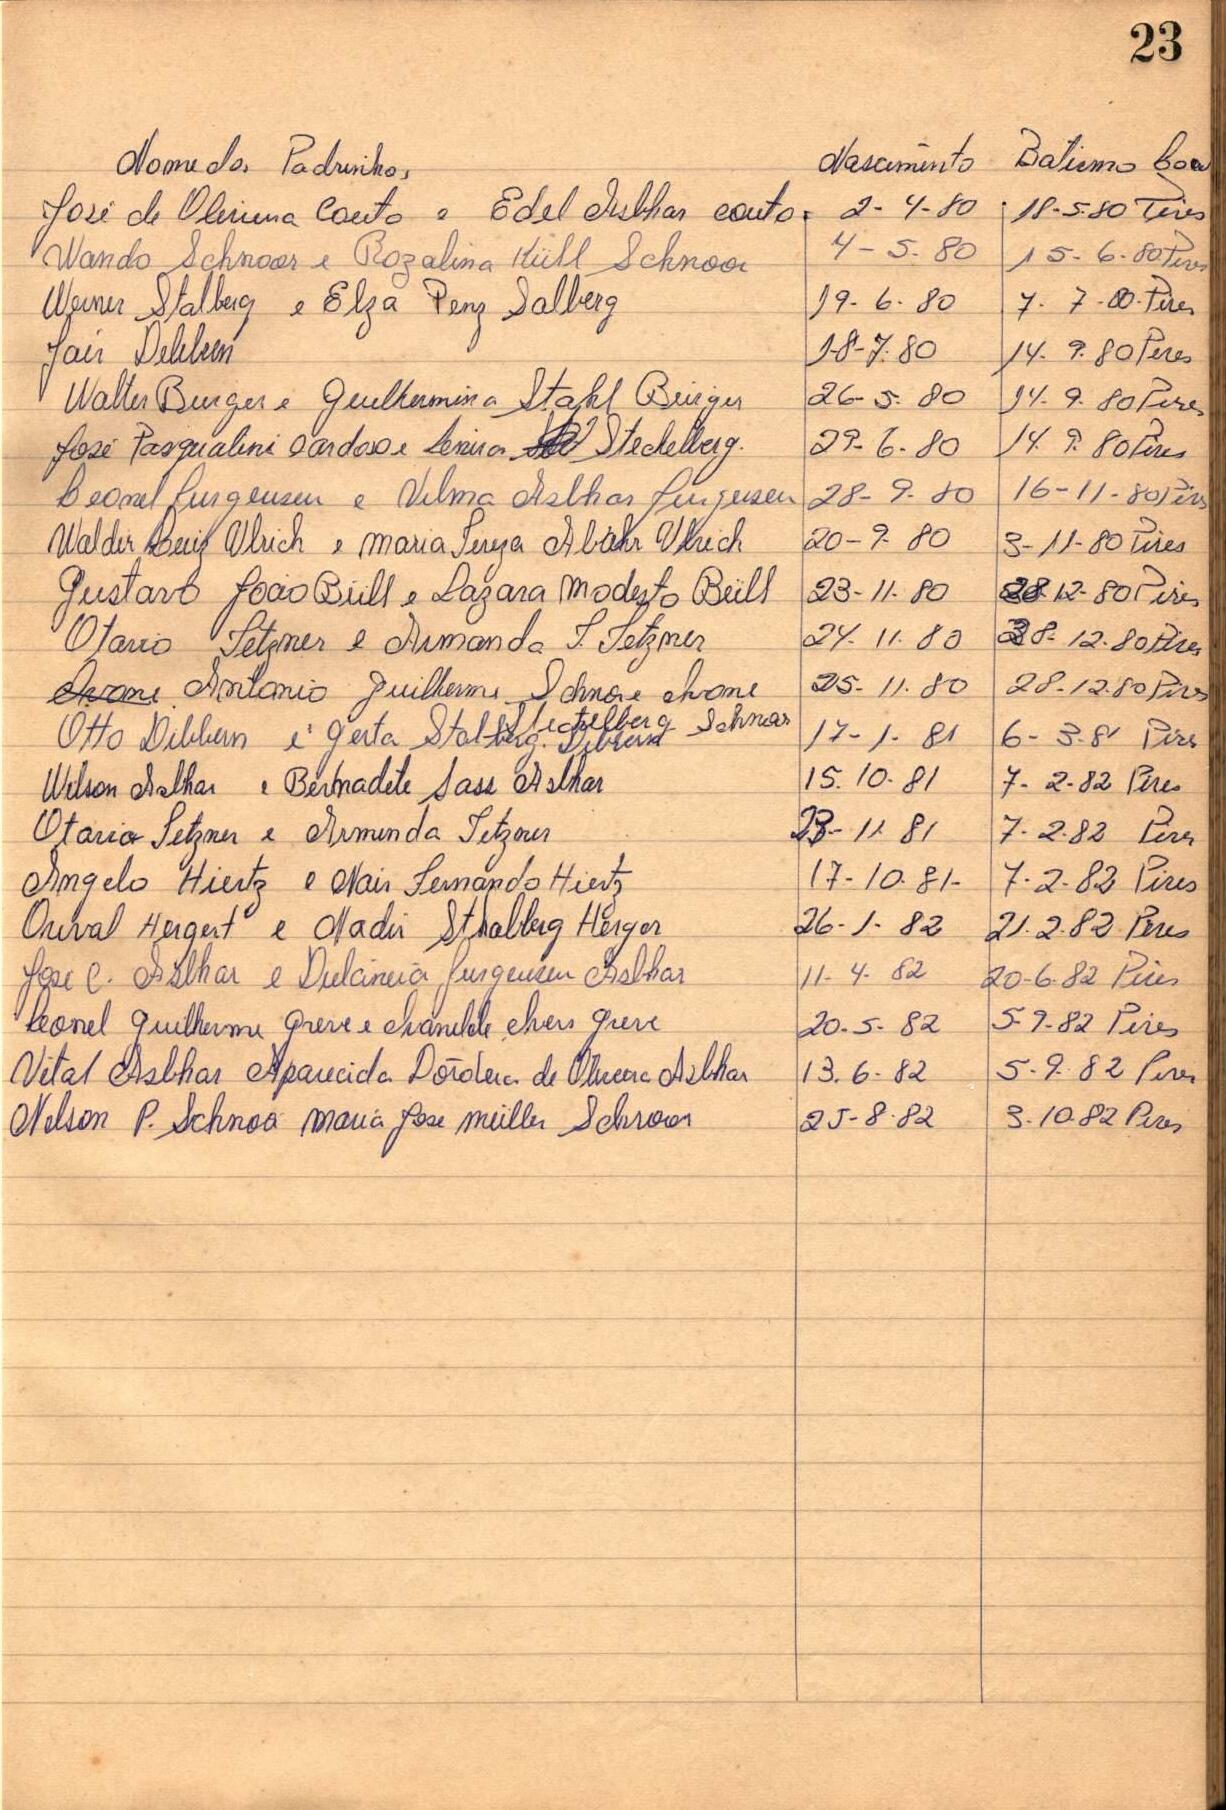 23
Nome dos Padrinhos Nascimento Batismo
José de Oliveira Couto e Edel Aslhar couto. 2-4-80 18-5.80 Pires
Wando Schnoor e Rozalina Hüll Schnoor 4-5-80 15-6-80 Pires
Werner Stalberg e Elza Penz Salberg 19-6-80 7-7-80-Pires
Jair Dibbern 18-7.80 14-9.80 Pires
Walter Burger e Guilhermina Stahl Bürger 26-5-80 14-9-80 Pires
José Pasqualini Cardoso e Lenira Steckelberg. 29-6-80 14-9-80 Pires
Leonel Jurgensen e Vilma Aslhar Jurgensen 28-9-80 16-11-80 Pires
Walder Luiz Ulrich e Maria Tereza Ulrich 20-9-80 3-11-80 Pires
Gustavo João Büll e Lazara Modesto Büll 23-11-80 28-12-80 Pires
Otavio Tetzner e Armanda T. Tetzner 24-11-80 28-12-80 Pires
Ivone Antonio Guilherme Schnor e Ivone 25-11-80 28-12-80 Pires
Steckelberg Schnoor
Otto Dibbern e Gerta Stalberg Dibbern 17-1-81 6-3-81 Pires
Wilson Aslhar e Bernadete Sass Aslhar 15.10-81 7-2-82 Pires
Otavio Tetzner e Armenda Tetzner 23-11-81 7-2.82 Pires
Angelo Hiertz e Nair Fernando Hiertz 17-10-81- 7-2-82 Pires
Orival Hergert e Nadir Sthalberg Herger 26-1-82 21.2.82 Pires
Jose C. Aslhar e Dulcineia Jurgensen Aslhar 11-4-82 20-6-82 Pires
Leonel Guilherme Greve e Ivanilde Greve 20-5-82 5-9-82 Pires
Vital Aslhar Aparecida de Oliveira Aslhar 13.6-82 5-9-82 Pires
Nelson P. Schnoo Maria Jose Müller Schnoor 25-8-82 3-10.82 Pires